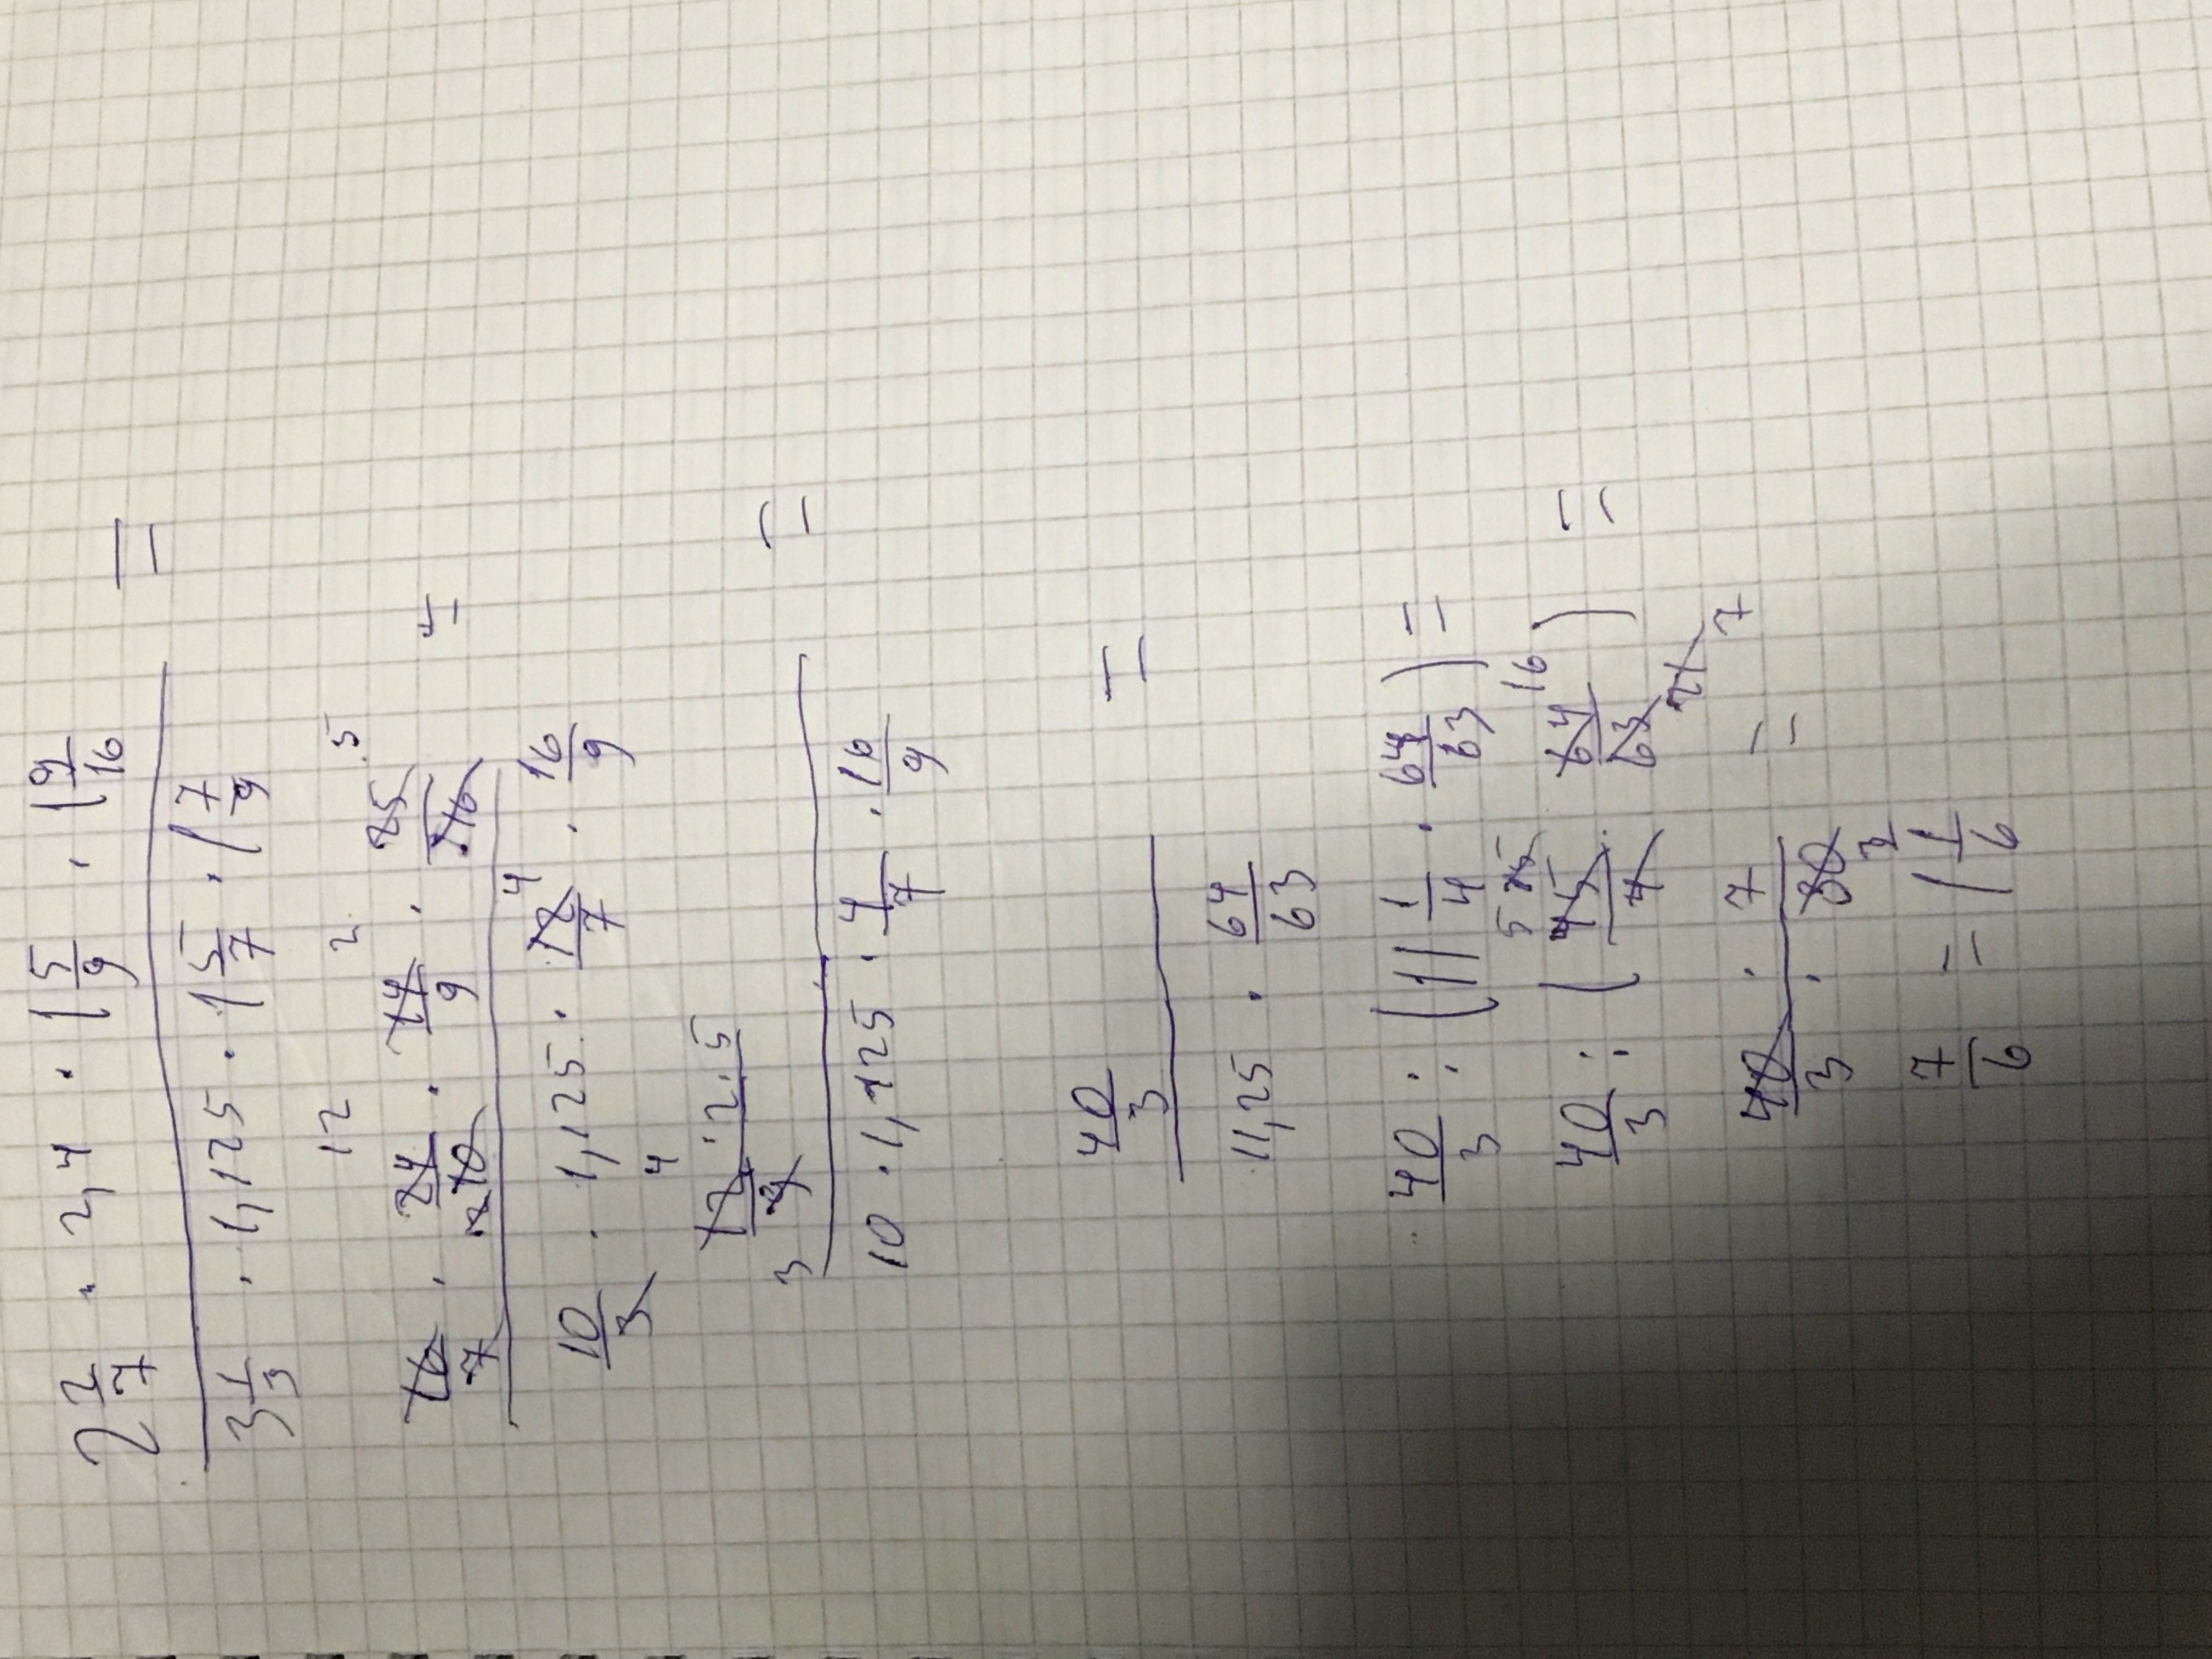 2 2/7 · 2,4 · 1 5/9 · 1 9/16 =
3 1/3 · 1,125 · 1 5/7 · 1 7/9
12 2 5
16/7 · 24/10 · 14/9 · 25/16 =
10/3 · 1,125 · 12/7 · 16/9
4 4
12 · 2 · 5 / 9 =
3
10 · 1,125 · 4/7 · 16/9
40/3 =
11,25 · 64/63
40/3 : (11 1/4 · 64/63) =
5 16
40/3 : (45/4 · 64/63) =
21 7
40 · 7 / 3 · 80 =
2
7/6 = 1 1/6